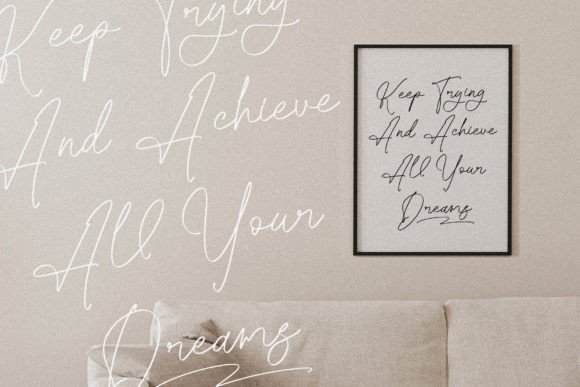 Keep Trying
And Achieve
All Your
Dreams
Keep Trying
And Achieve
All Your
Dreams